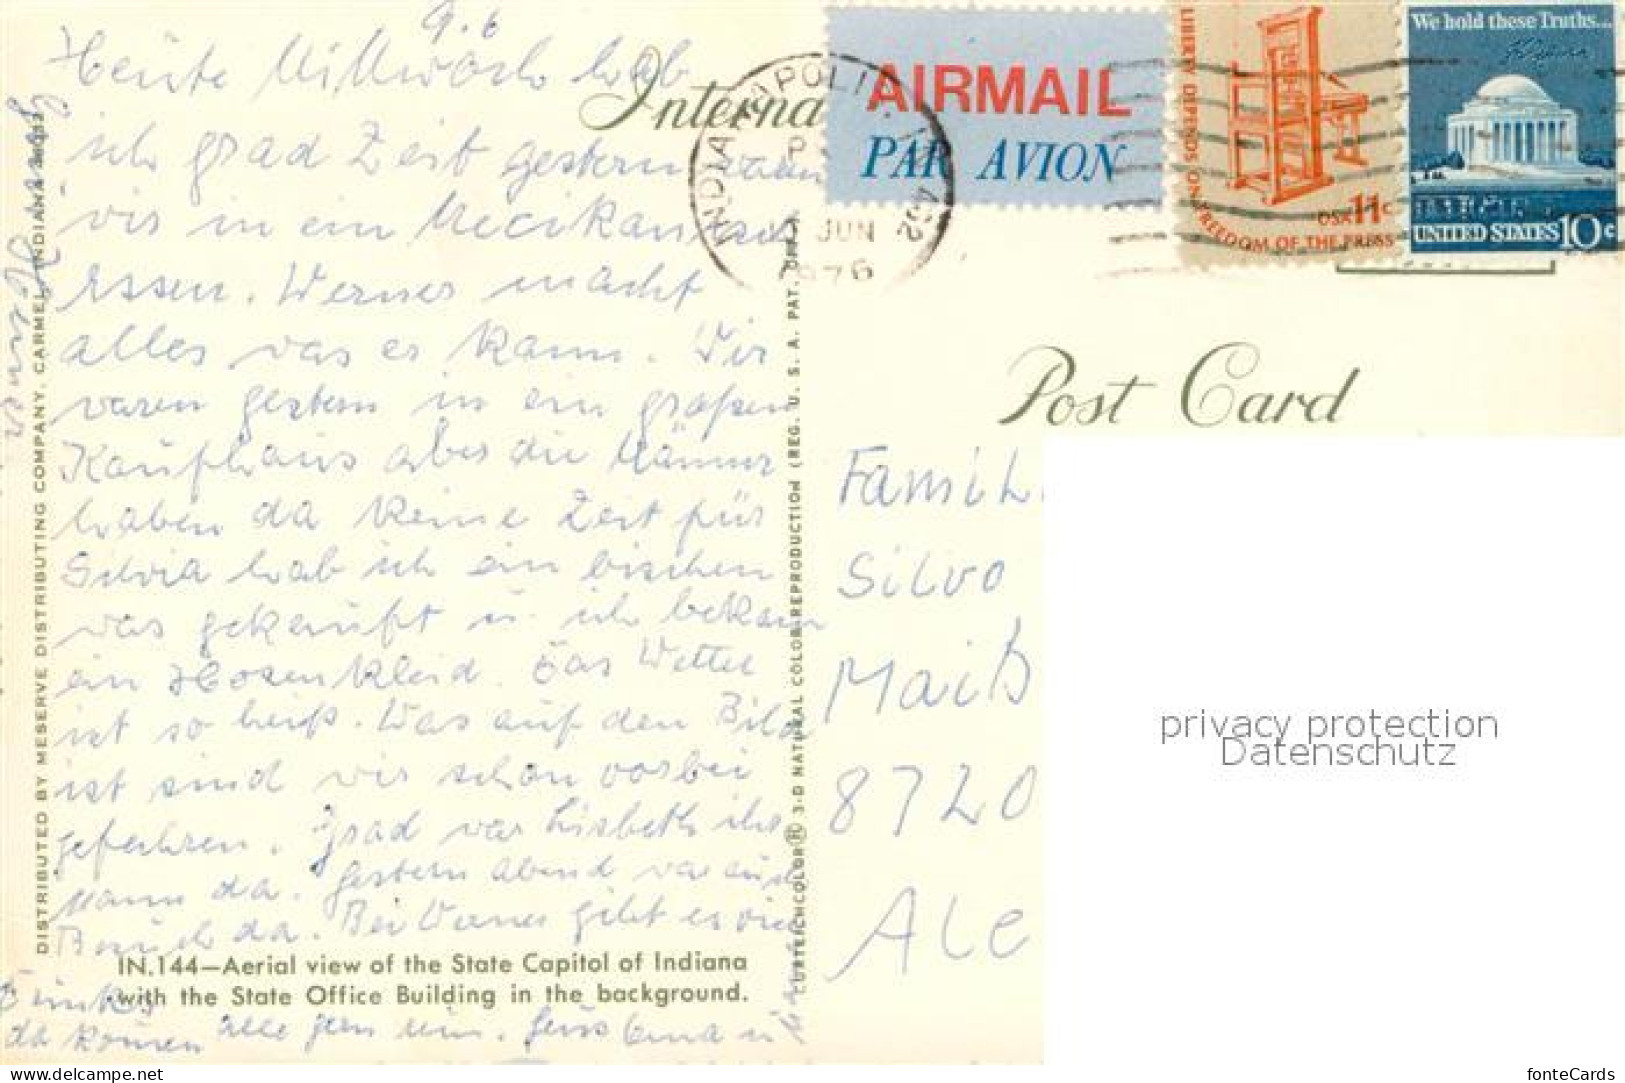 9.6
Heute Mittwoch hab
ich grad Zeit gestern waren
wir in ein Mecikanisch
Essen. Werner macht
alles was er kann. Wir
waren gestern in ein großen
Kaufhaus aber die Männer
haben da keine Zeit für
Silvia hab ich ein bischen
was gekauft u. ich bekam
ein Hosenkleid. Das Wetter
ist so heiß. Was auf den Bild
ist sind wir schon vorbei
gefahren. Grad war Lisbeth ihr
Mann da. Gestern Abend war auch
Besuch da. Bei Werner gibt es viel
da können alle gern
IN.144—Aerial view of the State Capitol of Indiana
with the State Office Building in the background.
DISTRIBUTED BY MESERVE DISTRIBUTING COMPANY, CARMEL, INDIANA
CURTEICHCOLOR® 3-D NATURAL COLOR REPRODUCTION (REG. U. S. A. PAT. OFF.)
Interna
AIRMAIL
PAR AVION
INDIANAPOLI
JUN
1976
LIBERTY DEPENDS ON FREEDOM OF THE PRESS
USA 11c
We hold these Truths...
UNITED STATES 10c
Post Card
Famili
Silvo
Maiß
8720
Ale
privacy protection
Datenschutz
www.delcampe.net
fonteCards